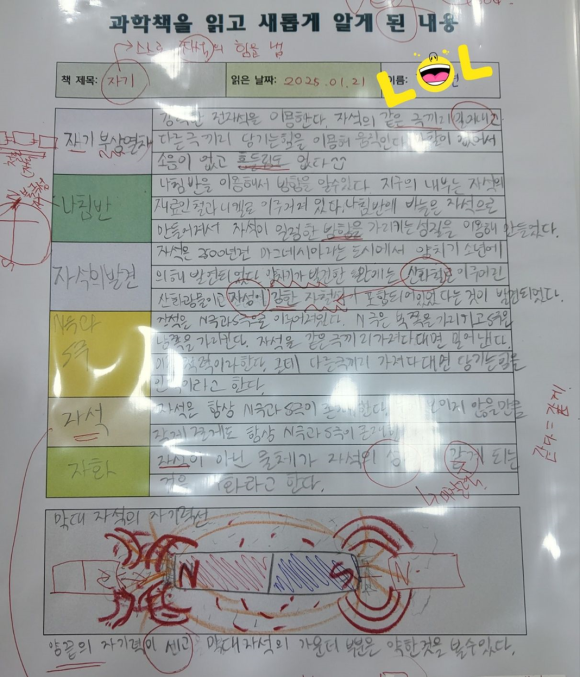 과학책을 읽고 새롭게 알게 된 내용
스스로 자석의 힘을 냄
책 제목: 자기 읽은 날짜: 2025.01.21 이름:
LOL
자기 부상열차
전자석을 이용한다 자석의 같은 극끼리 밀어내고
다른극끼리 당기는힘을 이용해 움직인다. 마찰이 없어서
소음이 없고 흔들림도 없다
나침반
나침반을 이용해서 방향을 알수있다 지구의 내부는 자석의
재료인 철과 니켈로 이루어져 있다. 나침반에 바늘은 자석으로
만들어져서 자석이 일정한 방향을 가리키는 성질을 이용해 만들었다.
자석의발견
자석은 마그네시아라는 도시에서 양치기 소년에
의해 발견되었다 양치기가 발견한 산화철로 이루어진
산화광물이고 자성이 강한 자철석 포함되어있었다는 것이 밝혀졌다.
N극과
S극
자석은 N극과S극으로 이루어져있다. N극은 북쪽을 가리키고 S극은
남쪽을 가리킨다. 자석을 같은극끼리 가져다 대면 밀어낸다.
척력이라한다 근데 다른극끼리 가져다 대면 당기는 힘을
인력이라고 한다.
자석
자석은 항상 N극과 S극이 존재한다. 보이지 않을만큼
작게 쪼개도 항상 N극과 S극이 존재
자화
자석이 아닌 물체가 자석의 성 갖게 되는
것을 자화라고 한다.
막대 자석의 자기력선
N S N
양끝의 자기력이 세고 막대자석의 가운데 부분은 약한것을 볼수있다.